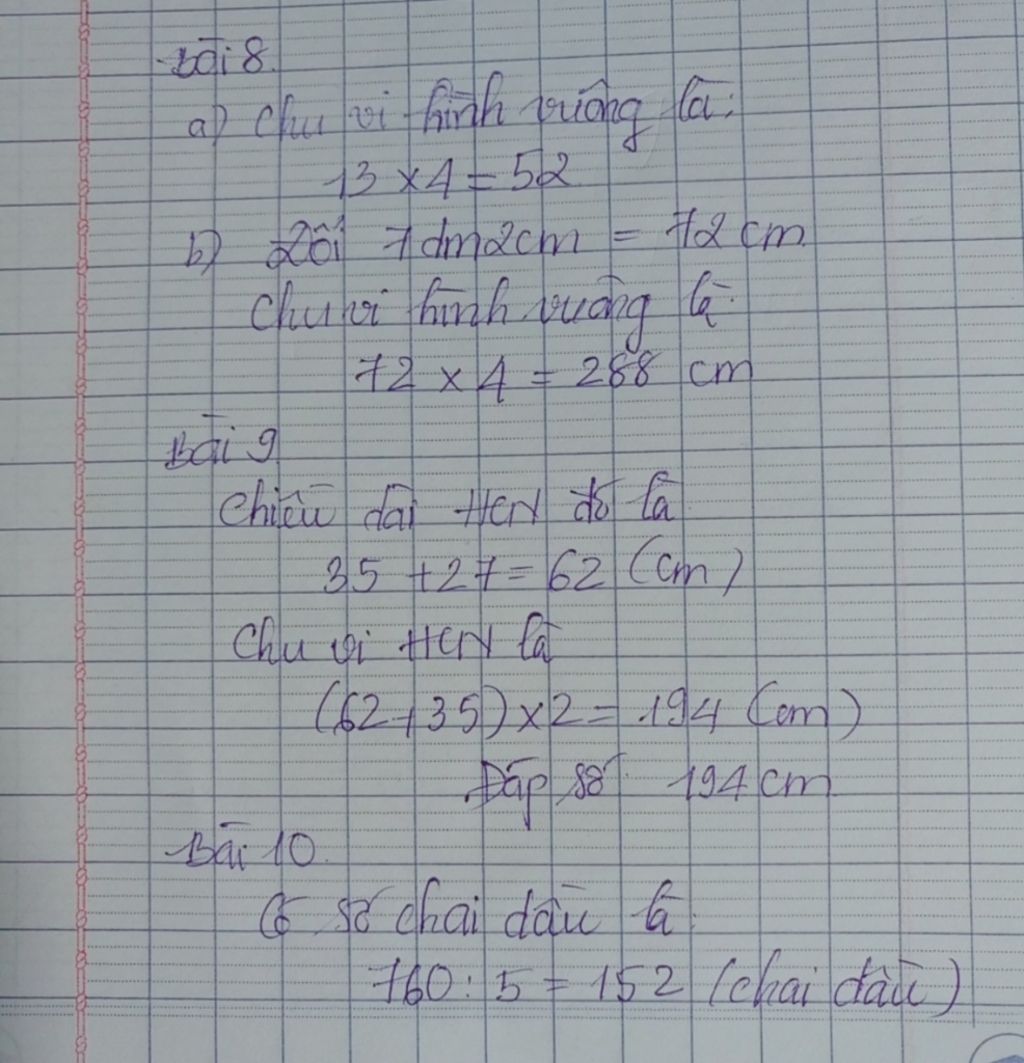 Bài 8.
a) Chu vi hình vuông là:
13 x 4 = 52
b) Đổi 7dm2cm = 72 cm
Chu vi hình vuông là:
72 x 4 = 288 cm
Bài 9
Chiều dài HCN đó là
35 + 27 = 62 (cm)
Chu vi HCN là
(62 + 35) x 2 = 194 (cm)
Đáp số 194 cm
Bài 10.
Có số chai dầu là:
760 : 5 = 152 (chai dầu)